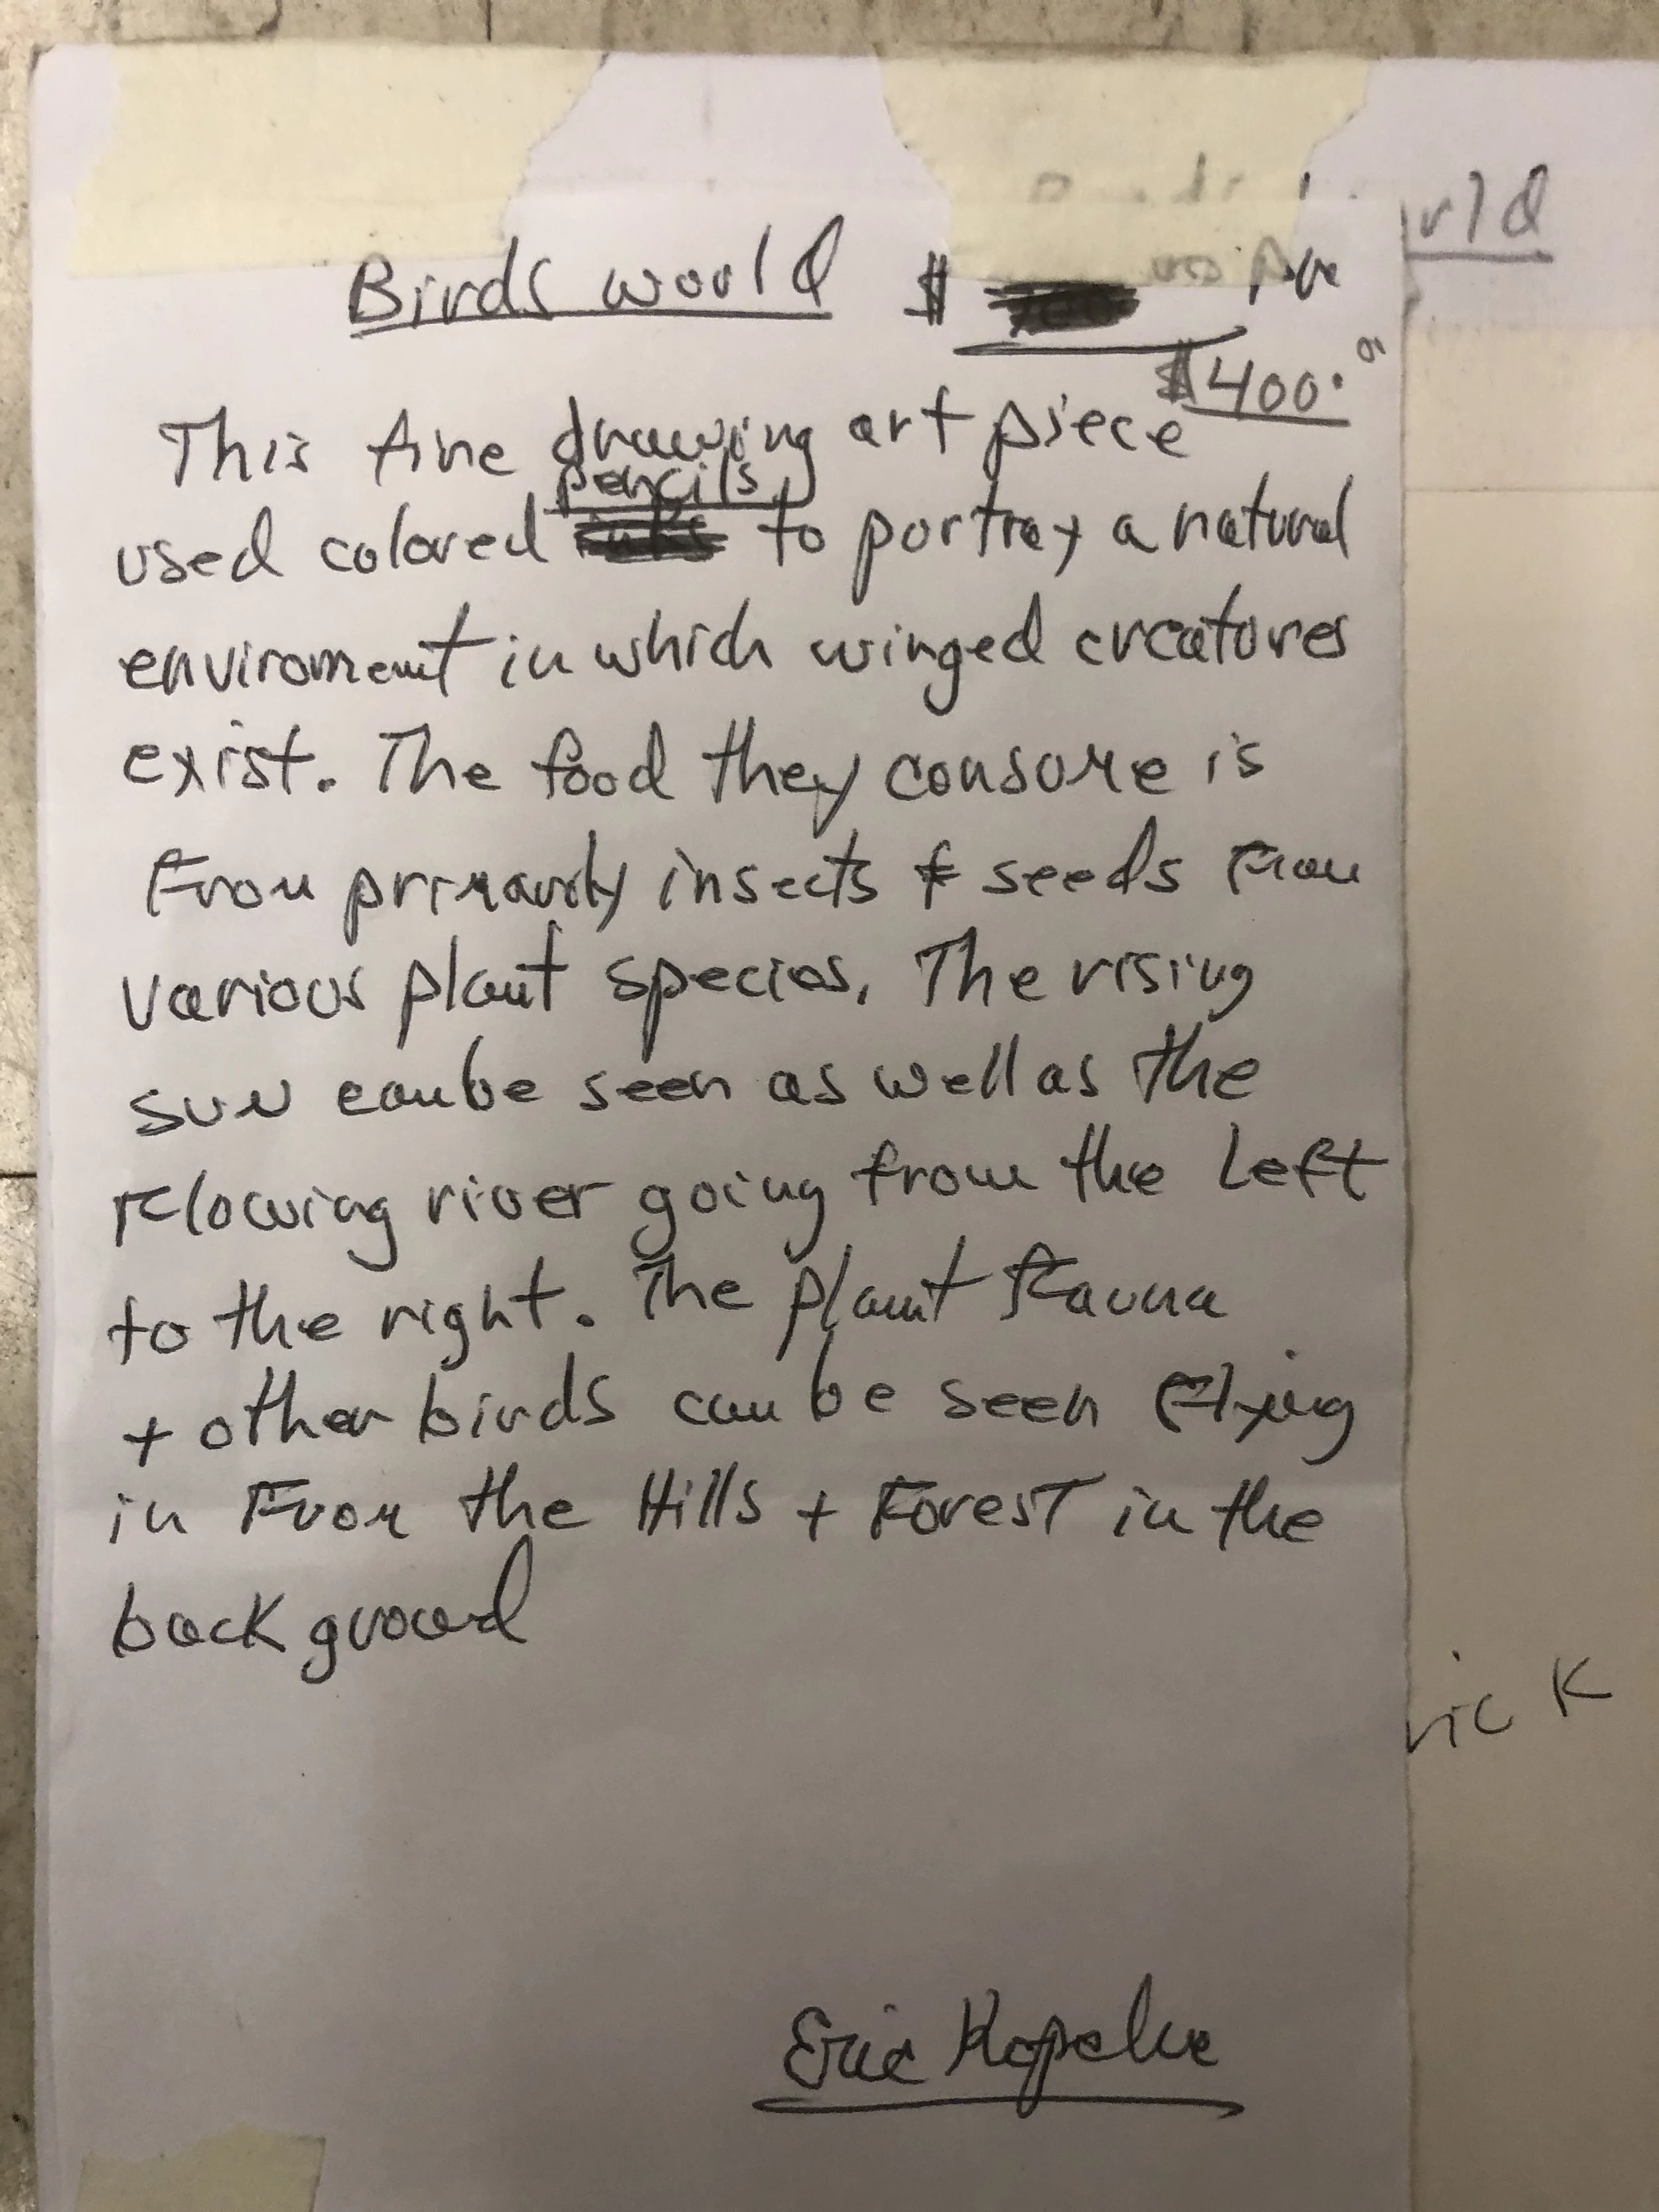 Birds would $
$400.00
This fine drawing art piece
pencils
used colored to portray a natural
enviroment in which winged creatures
exist. The food they consume is
From primarily insects & seeds From
various plant species. The rising
sun can be seen as well as the
Flowing river going from the Left
to the right. The plant Fauna
+ other birds can be seen Flying
in From the Hills + Forest in the
back ground
Eric
rld
ric K